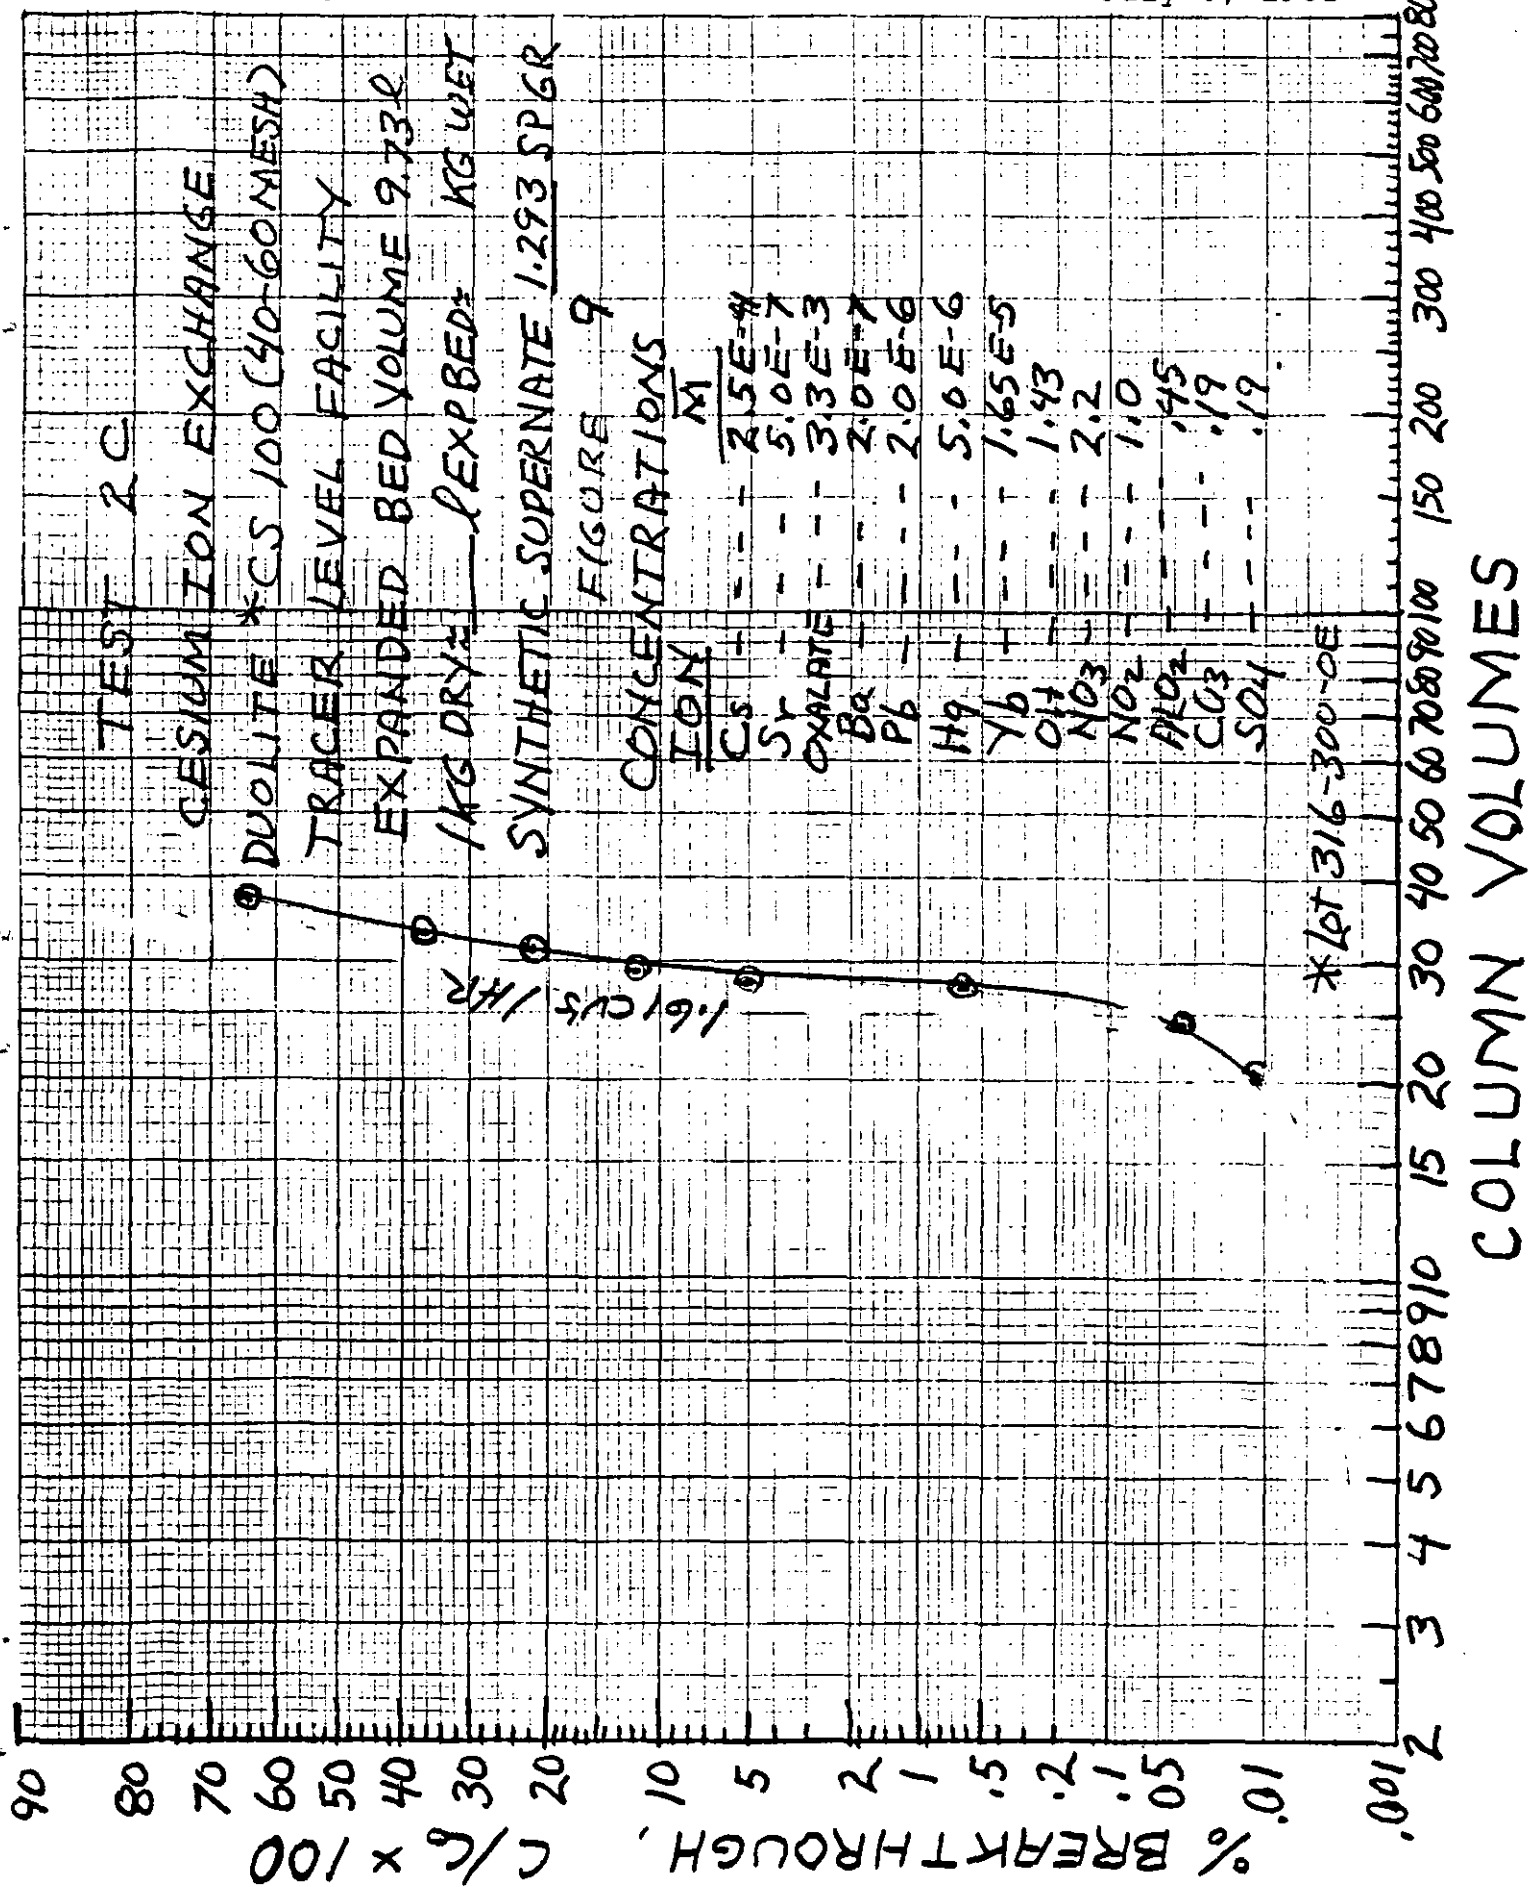 TEST 2C
CESIUM ION EXCHANGE
DUOLITE *CS 100 (40-60 MESH)
TRACER LEVEL FACILITY
EXPANDED BED VOLUME 9.73 l
1KG DRY≈ ___ l EXP BED≈ KG WET
SYNTHETIC SUPERNATE 1.293 SPGR
FIGURE 9
CONCENTRATIONS
ION M
Cs - - - 2.5E-4
Sr - - - 5.0E-7
OXALATE - - - 3.3E-3
Ba - - - 2.0E-7
Pb - - - 2.0E-6
Hg - - - 5.0E-6
Yb - - - 1.65E-5
OH - - - 1.43
NO3 - - - 2.2
NO2 - - - 1.0
ALO2 - - - .45
CO3 - - - .19
SO4 - - - .19
*Lot 316-300-0E
1.61 CVS/HR
% BREAKTHROUGH, C/C₀ x 100
90
80
70
60
50
40
30
20
10
5
2
1
.5
.2
.1
.05
.01
.001
2 3 4 5 6 7 8 9 10 15 20 30 40 50 60 70 80 90 100 150 200 300 400 500 600 700 80
COLUMN VOLUMES